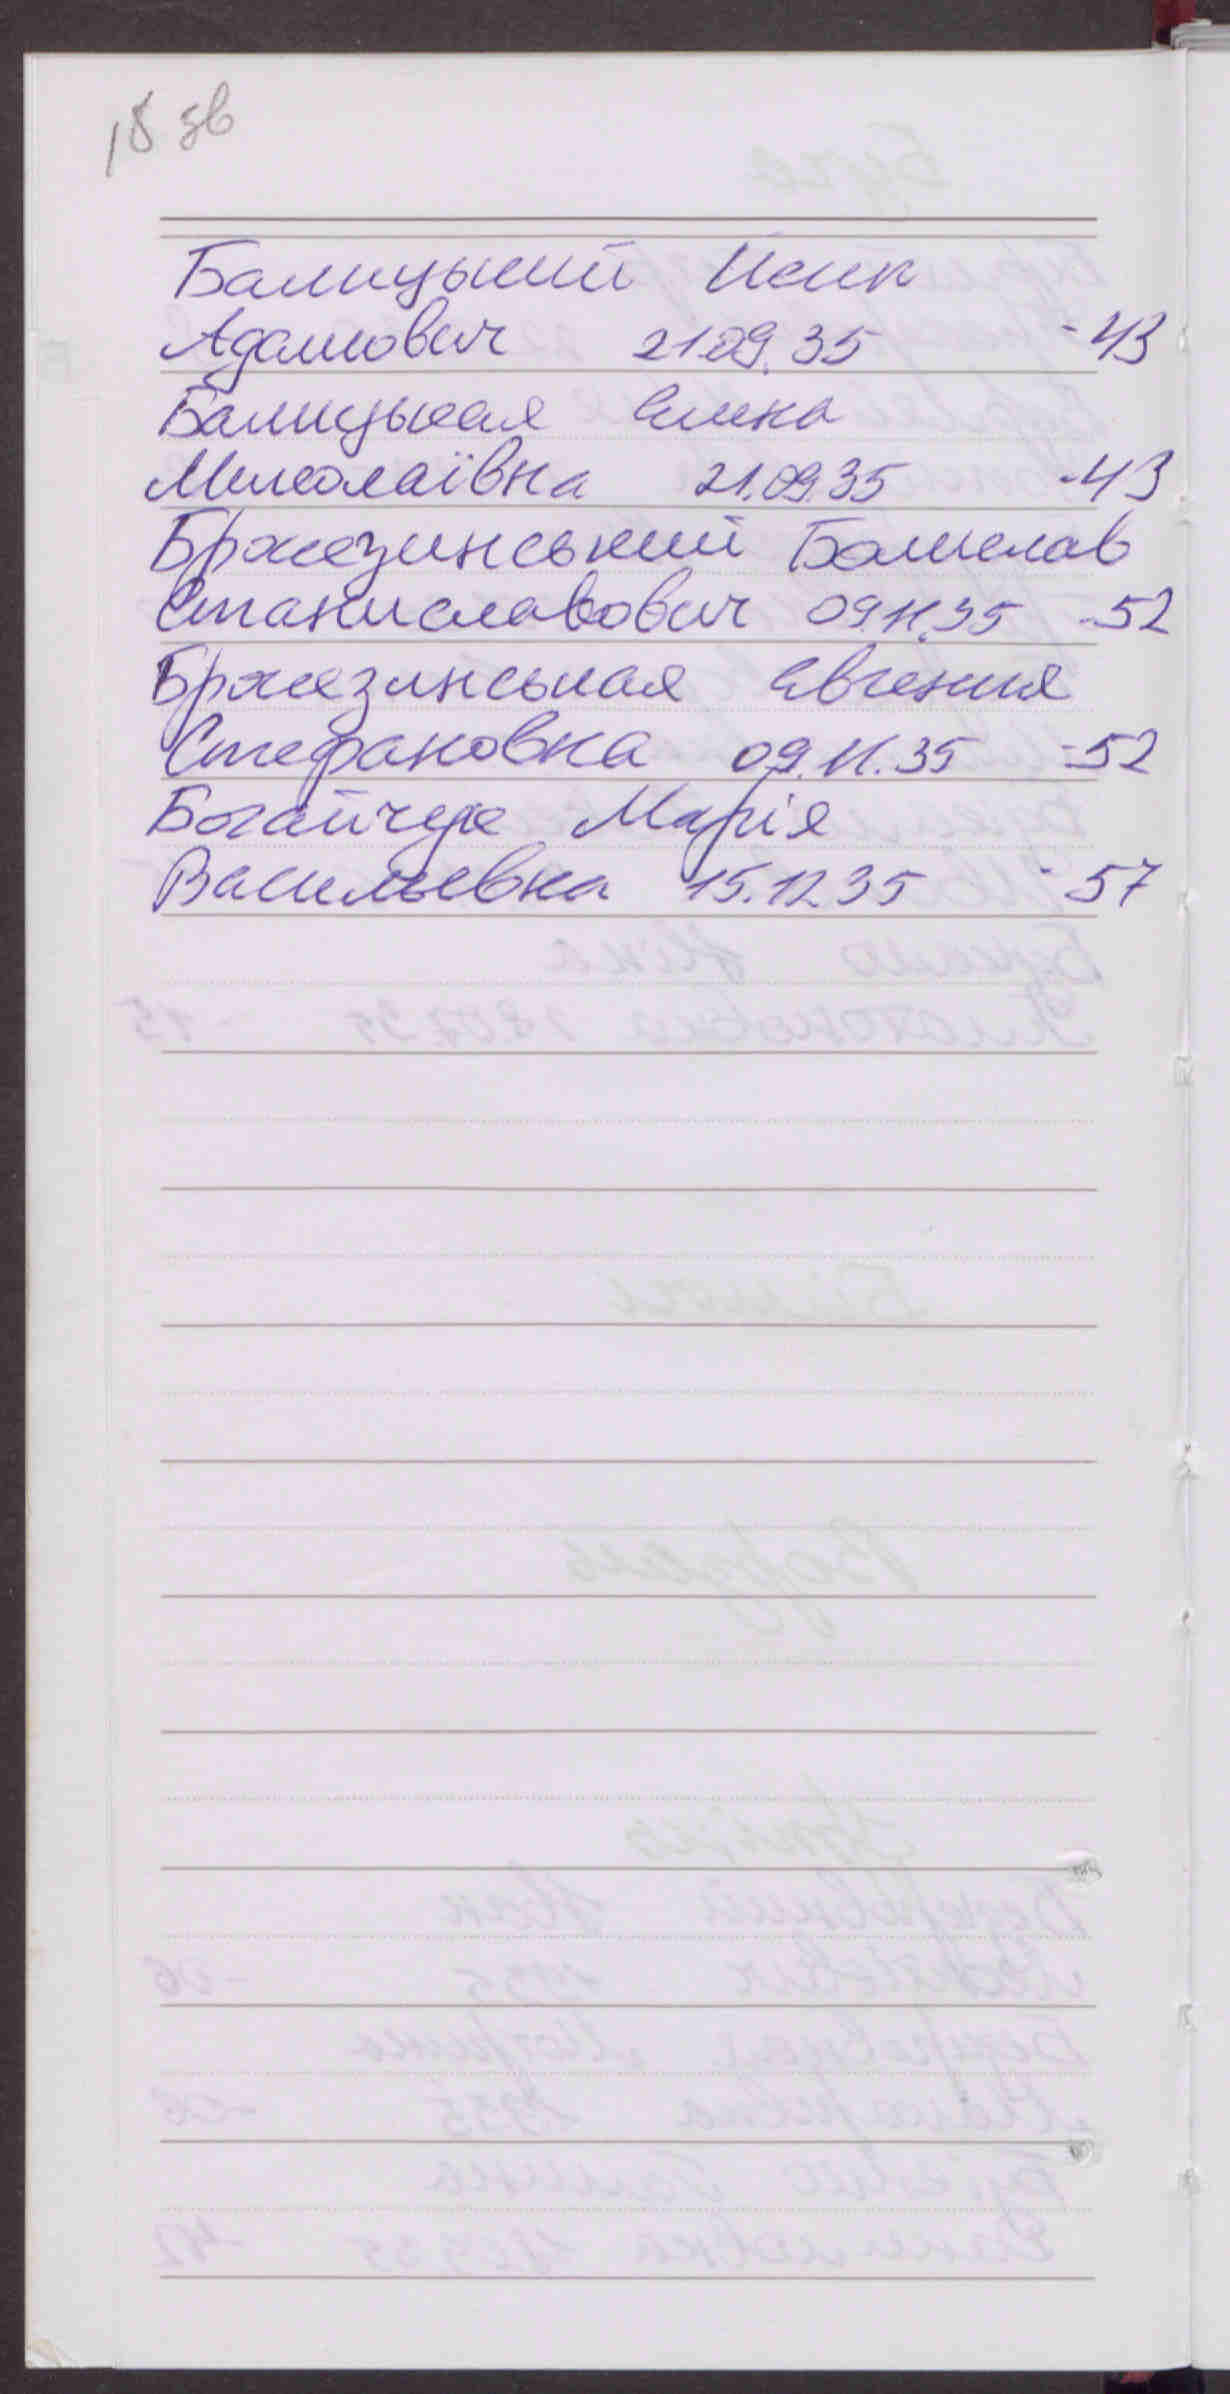 18 зв
Балицький Исик
Адамович 21.09.35 -43
Балицькая Елена
Миколаївна 21.09.35 -43
Бржезинський Болислав
Станиславович 09.11.35 -52
Бржезинськая Евгения
Стефановка 09.11.35 -52
Богайчук Марія
Васильевна 15.12.35 - 57